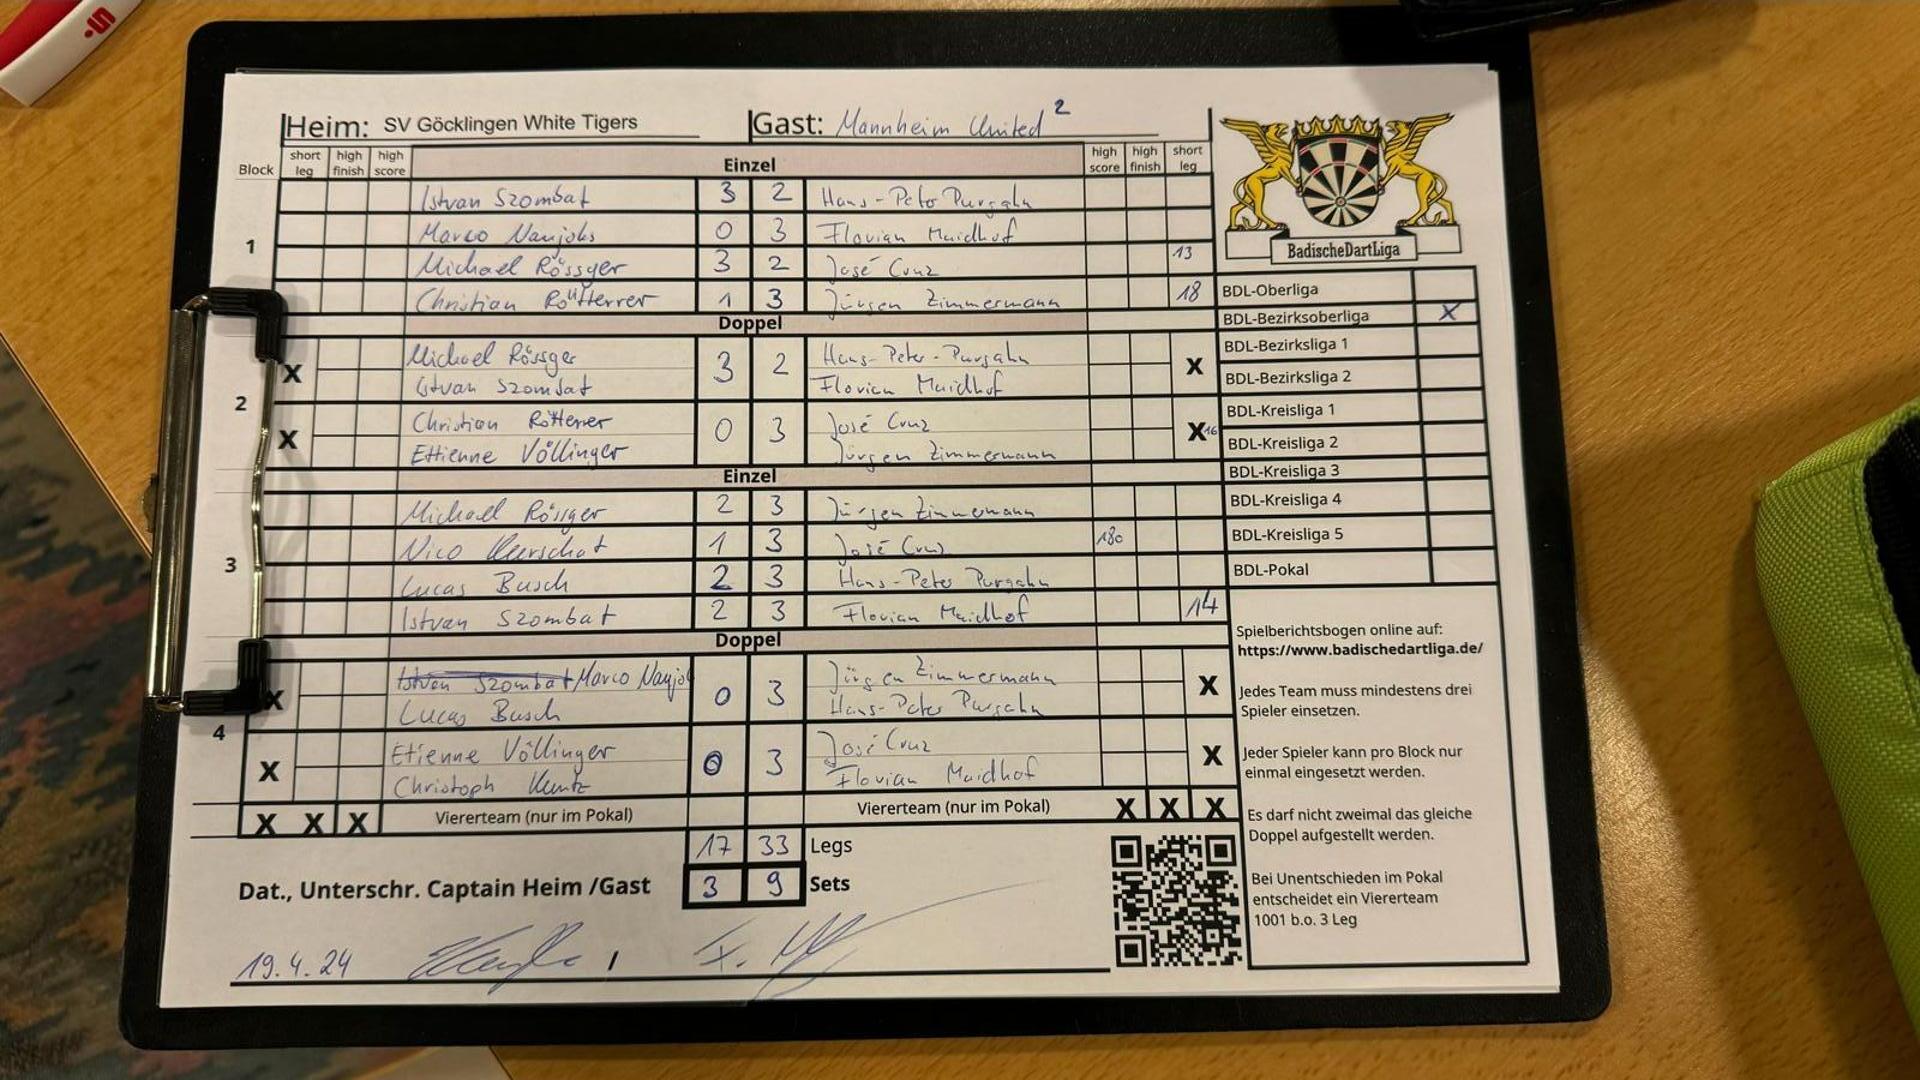 Heim: SV Göcklingen White Tigers Gast: Mannheim United 2
Block short leg high finish high score Einzel high score high finish short leg
1
Istvan Szombat 3 2 Hans-Peter Purgahn
Marco Naujoks 0 3 Florian Maidhof
Michael Rössger 3 2 José Cruz 13
Christian Rötterer 1 3 Jürgen Zimmermann 18
Doppel
2
X Michael Rössger 3 2 Hans-Peter-Purgahn X
Istvan Szombat Florian Maidhof
X Christian Rötterer 0 3 José Cruz X 16
Ettienne Völlinger Jürgen Zimmermann
Einzel
3
Michael Rössger 2 3 Jürgen Zimmermann
Nico 1 3 José Cruz 180
Lucas Busch 2 3 Hans-Peter Purgahn
Istvan Szombat 2 3 Florian Maidhof 14
Doppel
4
X Istvan Szombat Marco Naujo 0 3 Jürgen Zimmermann X
Lucas Busch Hans-Peter Purgahn
X Etienne Völlinger 0 3 José Cruz X
Christoph Kuntz Florian Maidhof
X X X Viererteam (nur im Pokal) Viererteam (nur im Pokal) X X X
17 33 Legs
Dat., Unterschr. Captain Heim /Gast 3 9 Sets
19.4.24 /
BadischeDartLiga
BDL-Oberliga
BDL-Bezirksoberliga X
BDL-Bezirksliga 1
BDL-Bezirksliga 2
BDL-Kreisliga 1
BDL-Kreisliga 2
BDL-Kreisliga 3
BDL-Kreisliga 4
BDL-Kreisliga 5
BDL-Pokal
Spielberichtsbogen online auf:
https://www.badischedartliga.de/
Jedes Team muss mindestens drei
Spieler einsetzen.
Jeder Spieler kann pro Block nur
einmal eingesetzt werden.
Es darf nicht zweimal das gleiche
Doppel aufgestellt werden.
Bei Unentschieden im Pokal
entscheidet ein Viererteam
1001 b.o. 3 Leg